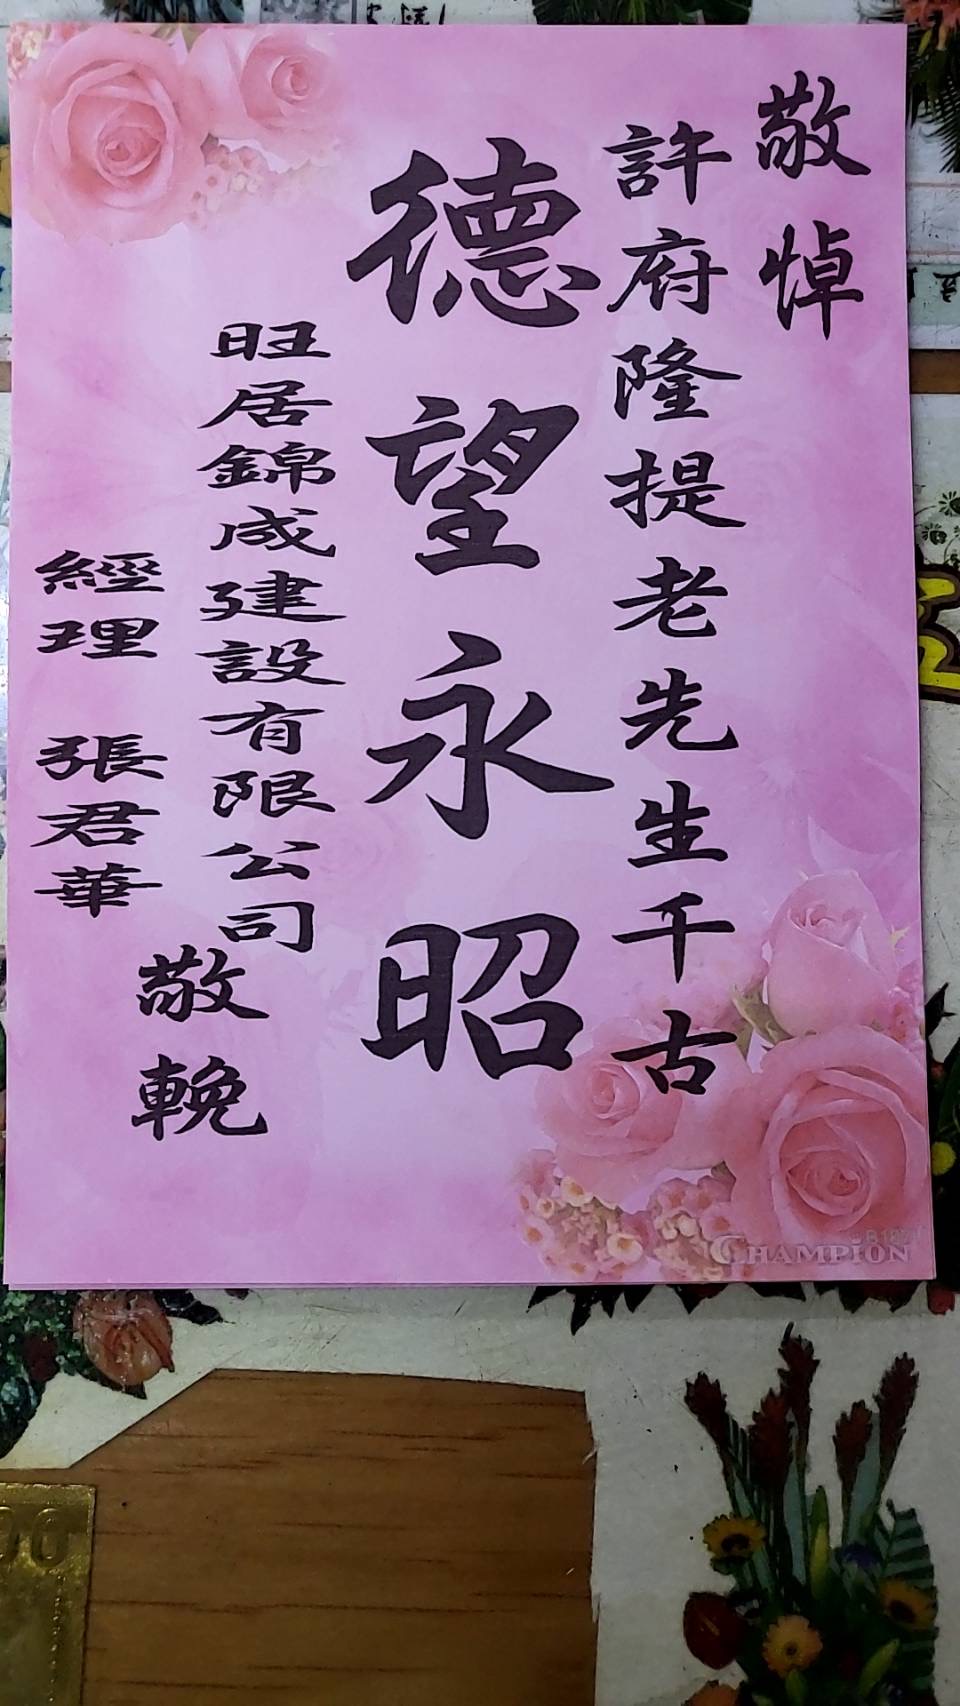 敬悼
許府隆提老先生千古
德望永昭
旺居錦成建設有限公司
經理 張君華
敬輓
CHAMPION